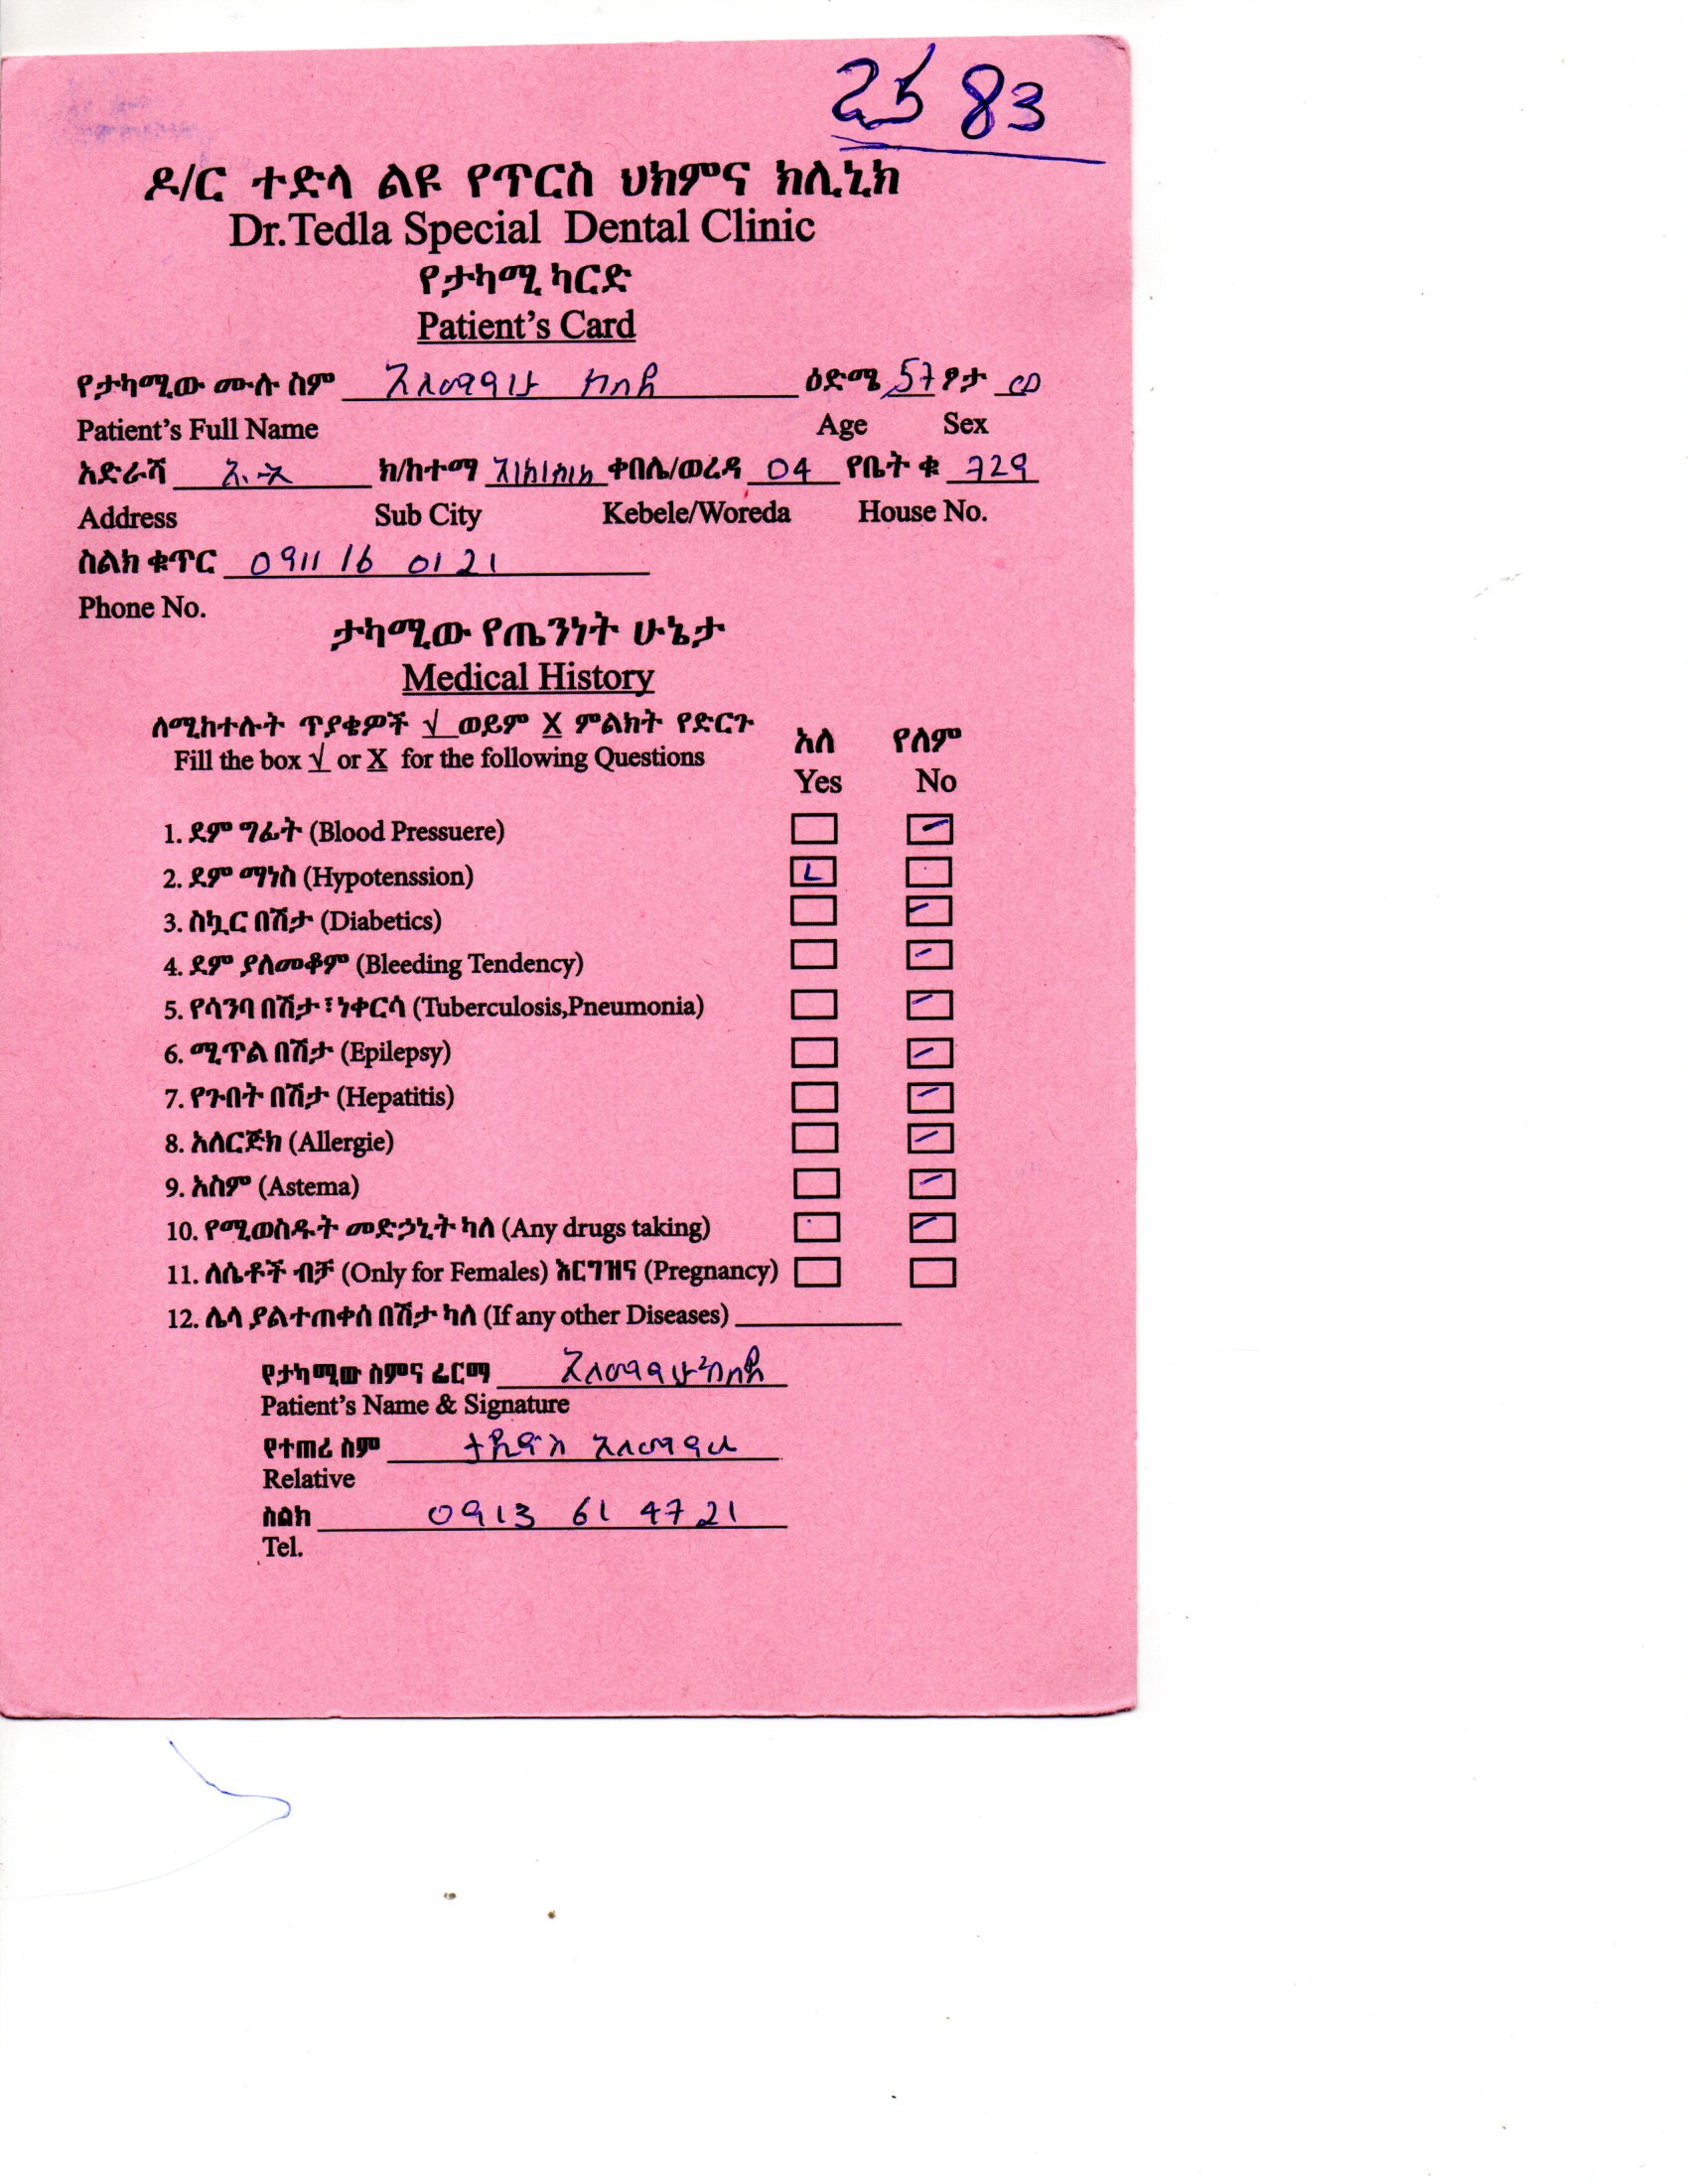 83
ዶ/ር ተድላ ልዩ የጥርስ ህክምና ክሊኒክ
Dr.Tedla Special Dental Clinic
የታካሚ ካርድ
Patient's Card
የታካሚው ሙሉ ስም አለማየሁ ከበደ ዕድሜ 57 ፆታ ወ
Patient's Full Name Age Sex
አድራሻ አ.አ ክ/ከተማ ቀበሌ/ወረዳ 04 የቤት ቁ 729
Address Sub City Kebele/Woreda House No.
ስልክ ቁጥር 0911 16 01 21
Phone No.
ታካሚው የጤንነት ሁኔታ
Medical History
ለሚከተሉት ጥያቄዎች √ ወይም X ምልክት የድርጉ አለ የለም
Fill the box √ or X for the following Questions Yes No
1. ደም ግፊት (Blood Pressuere)
2. ደም ማነስ (Hypotenssion)
3. ስኳር በሽታ (Diabetics)
4. ደም ያለመቆም (Bleeding Tendency)
5. የሳንባ በሽታ፣ ነቀርሳ (Tuberculosis,Pneumonia)
6. ሚጥል በሽታ (Epilepsy)
7. የጉበት በሽታ (Hepatitis)
8. አለርጅክ (Allergie)
9. አስም (Astema)
10. የሚወስዱት መድኃኒት ካለ (Any drugs taking)
11. ለሴቶች ብቻ (Only for Females) እርግዝና (Pregnancy)
12. ሌላ ያልተጠቀሰ በሽታ ካለ (If any other Diseases)
የታካሚው ስምና ፊርማ አለማየሁ ከበደ
Patient's Name & Signature
የተጠሪ ስም አለማየሁ
Relative
ስልክ 0913 61 47 21
Tel.